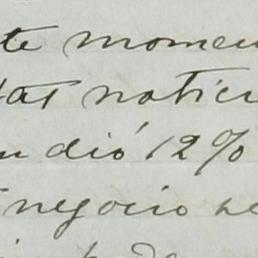 te momen
tas notici
dió 12%
negocio se